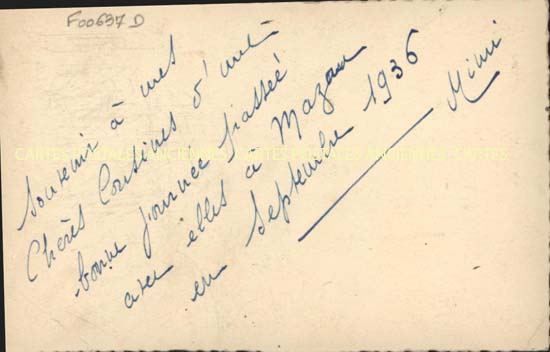 F00637D
Souvenir à mes
Chères Cousines d'une
bonne journée passée
avec elles à Mazan
en Septembre 1936
Mimi
CARTES POSTALES ANCIENNES - CARTES POSTALES ANCIENNES - CARTES